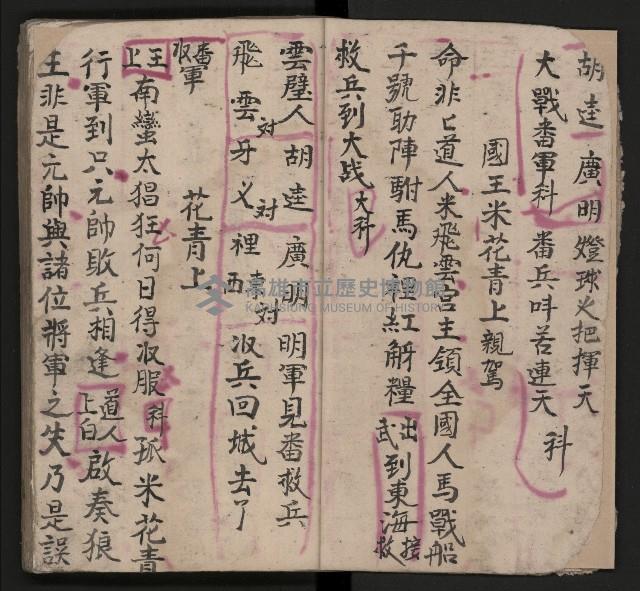 胡逵廣明燈球火把揮天
大戰番軍科番兵呌苦連天科
國王米花青上親駕
命非七道人米飛雲宮主領全國人馬戰船
千號助陣駙馬仇裡紅觧糧出武到東海接救
救兵到大战大科
雲璧人胡逵廣明明軍見番救兵
飛雲對牙义對裡西達對収兵回城去了
番収軍花青上
王上南蠻太猖狂何日得収服科孤米花青
行軍到只元帥敗兵相逢道人上白啟奏狼
王非是元帥與諸位將軍之失乃是誤
高雄市立歷史博物館
KAOHSIUNG MUSEUM OF HISTORY